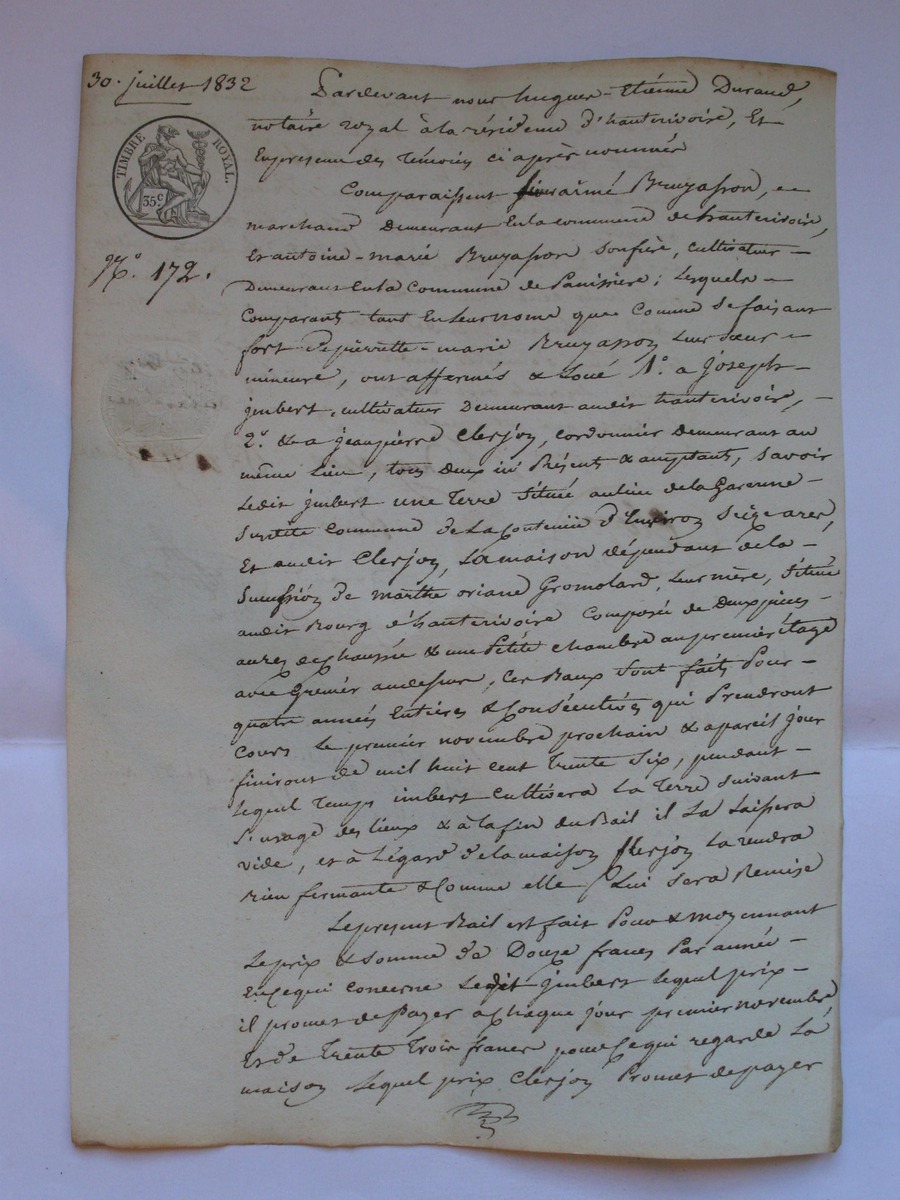 30. juillet 1832
TIMBRE ROYAL.
35c.
No. 172.
Pardevant nous hugues-Etienne Durand,
notaire royal à la résidence d'hauterivoire, Et
En presence des Témoins ci après nommés
Comparaissent aimé Bruyasson,
marchand Demeurant En la commune de hauterivoire,
Et antoine-marie Bruyasson son frère, cultivateur
Demeurant En la Commune de Panissière; Lesquels
Comparants tant En leur nome que Comme Se faisant
fort de pierrette-marie Bruyasson leur sœur
mineure, ont affermés & Loué 1o. a joseph
jmbert, cultivateur Demeurant audit hauterivoire,
2o. & a jean pierre Clerjon, cordonnier demeurant au
même lieu, tous deux ici Présents & acceptants, Savoir
Ledit jmbert une Terre Située au lieu de la Garenne
Susdite Commune de La Contenüe d'Environ Seize ares,
Et audit Clerjon, La maison dépendant de la
Succession de marthe oriand Gromolard, leur mère, Située
audit Bourg d'hauterivoire Composée de Deux pièces
au rez de chaussée & une Petite chambre au premier étage
avec Grenier au dessus, Ces Baux Sont faits Pour
quatre années Entières & Consécutives qui Prendront
Cours Le premier novembre prochain & a pareil jour
finiront de mil huit cent Trente Six, pendant
lequel Temps imbert Cultivera La Terre Suivant
L'usage des Lieux & à la fin du Bail il La Laissera
vide, et à L'égard de la maison Clerjon La rendra
bien fermante & Comme elle Lui Sera Remise
Le present Bail est fait Pour & moyennant
Le prix & Somme de Douze francs Par année
En ce qui Concerne Ledit jmbert Lequel prix
il promet de Payer a Chaque jour premier novembre
Et de Trente Trois francs pour Ce qui regarde La
maison Lequel prix Clerjon Promet de payer